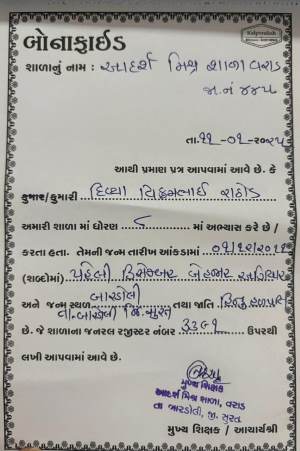 બોનાફાઈડ
Kalpvruksh
શાળાનું નામ : આદર્શ મિશ્ર શાળા વરાડ
જા.નં ૪૪૫
તા.૧૧-૦૧-૨૦૨૫
આથી પ્રમાણ પત્ર આપવામાં આવે છે. કે
કુમાર/કુમારી દિવ્યા વિક્રમભાઈ રાઠોડ
અમારી શાળા માં ધોરણ ૮ માં અભ્યાસ કરે છે /
કરતા હતા. તેમની જન્મ તારીખ આંકડામાં ૦૧/૧૨/૨૦૧૧
(શબ્દોમાં) પહેલી ડિસેમ્બર બેહજાર અગિયાર
અને જન્મ સ્થળ બારડોલી તા.બારડોલી જિ.સુરત તથા જાતિ હિન્દુ હળપતિ
છે. જે શાળાના જનરલ રજીસ્ટર નંબર ૩૩૯૧ ઉપરથી
લખી આપવામાં આવે છે.
મુખ્ય શિક્ષક
આદર્શ મિશ્ર શાળા, વરાડ
તા બારડોલી, જી. સુરત
મુખ્ય શિક્ષક / આચાર્યશ્રી